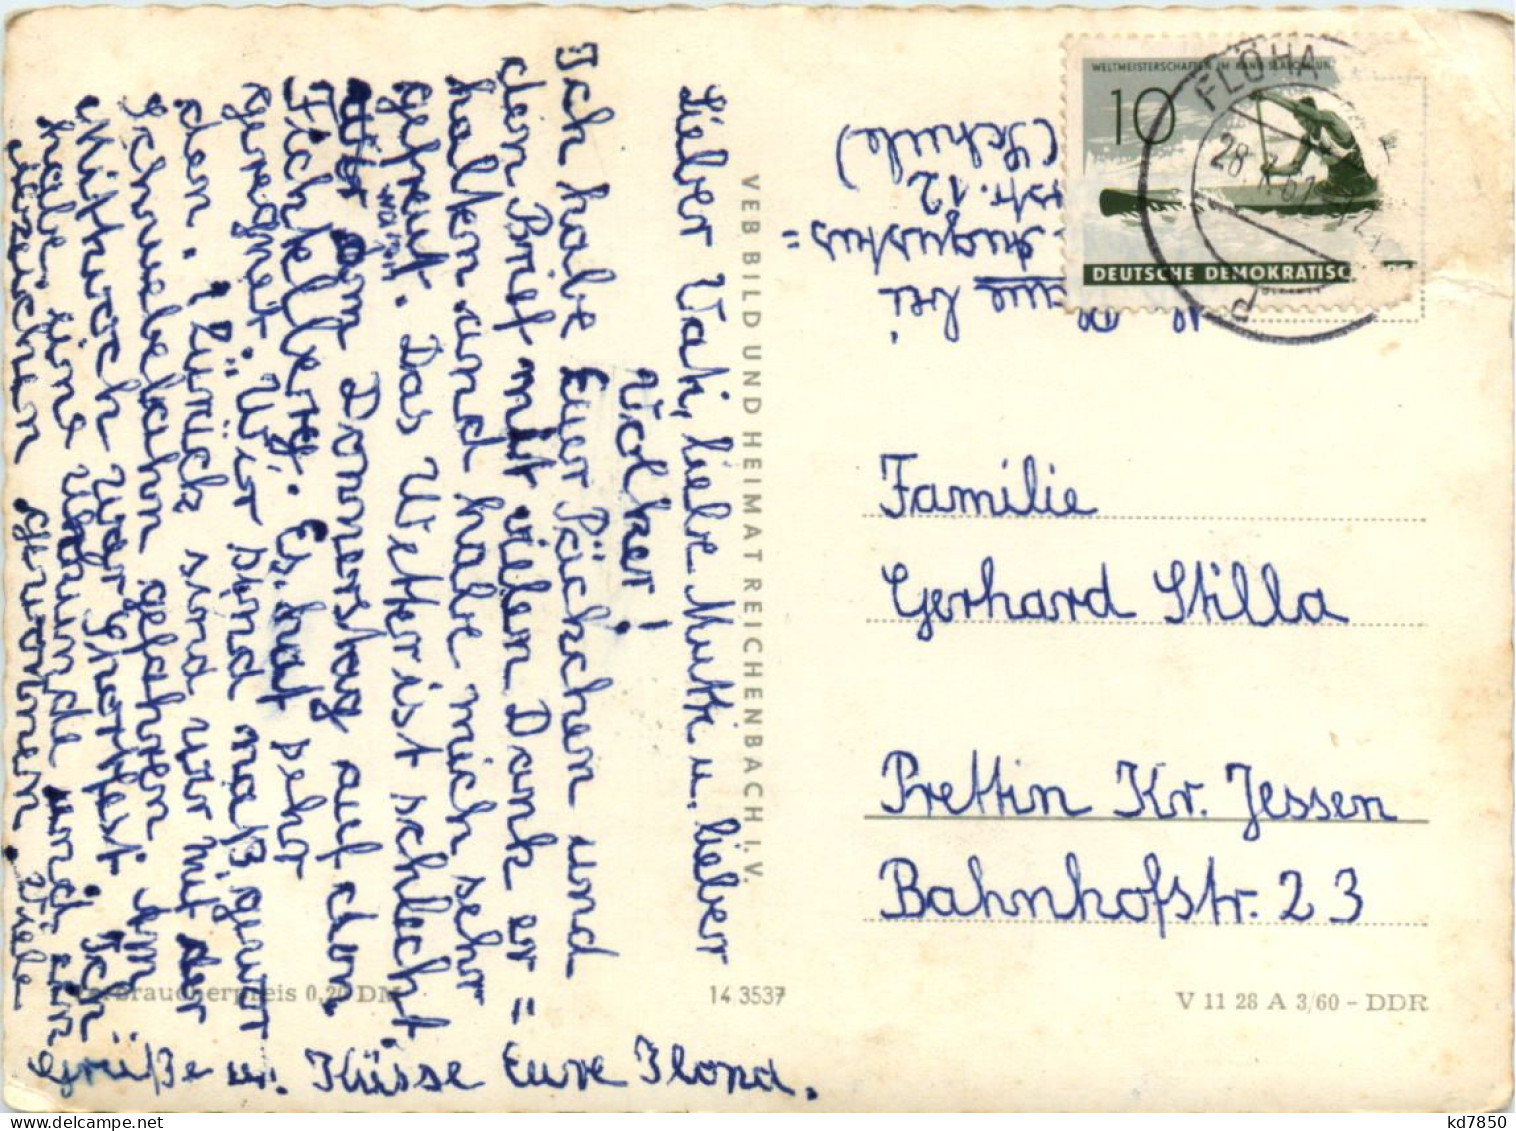 Lieber Vati, liebe Mutti u. lieber
Volker!
Ich habe Euer Päckchen und
den Brief mit vielen Dank er=
halten und habe mich sehr
gefreut. Das Wetter ist schlecht
Am Donnerstag auf den
waren
Fichtelberg. Es hat sehr
geregnet. Wir sind naß gewor
den. Zurück sind wir mit der
Schwebebahn gefahren. Am
Mittwoch war Sportfest. Ich
habe eine Urkunde und ein
Abzeichen gewonnen. Viele
Grüße u. Küsse Eure Ilona.
VEB BILD UND HEIMAT REICHENBACH I. V.
Verbraucherpreis 0,20 DM
14 3537
bei
Augustus=
str. 12
(Schule)
10
DEUTSCHE DEMOKRATISC
FLÖHA
Familie
Gerhard Stilla
Prettin Kr. Jessen
Bahnhofstr. 23
V 11 28 A 3/60 - DDR
kd7850